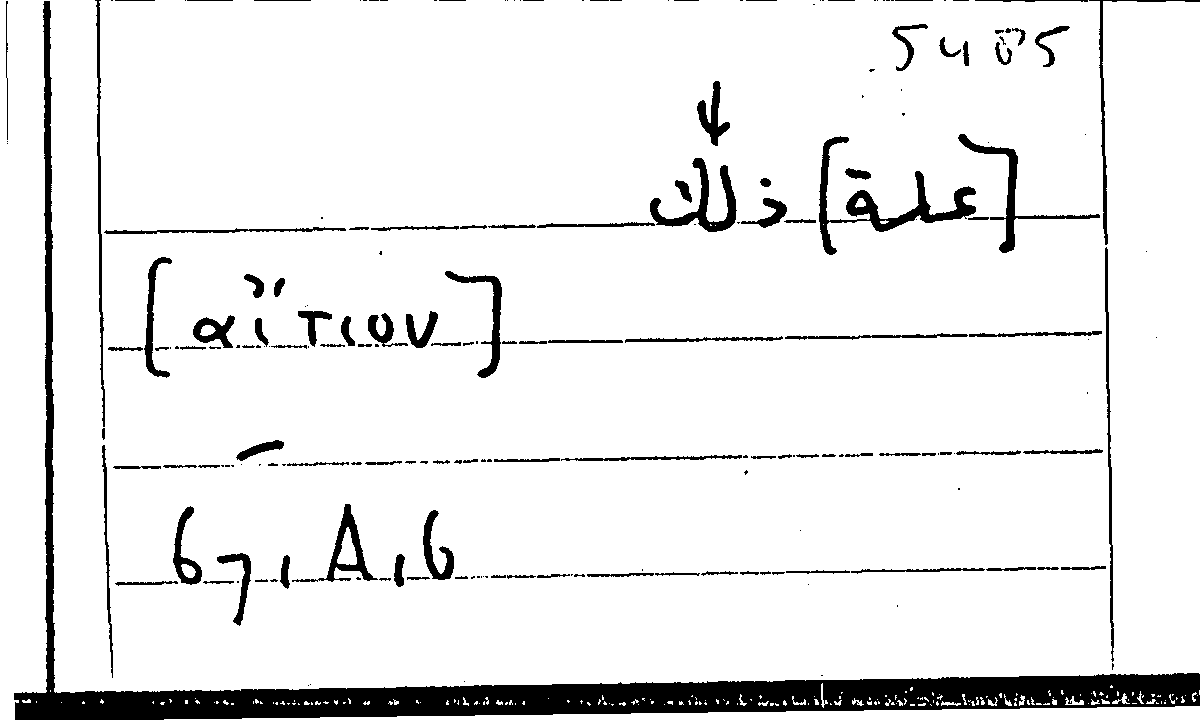 ↓
[علة] ذلك
[αἴτιον]
—
67, A, 6